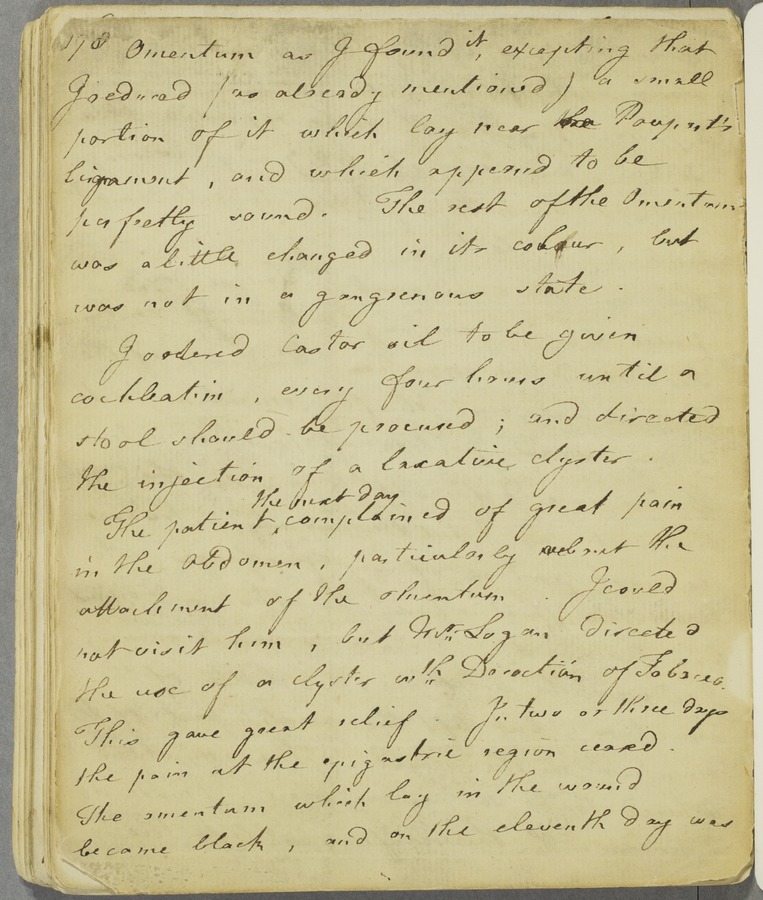 178 Omentum as I found it, excepting that
I reduced (as already mentioned) a small
portion of it which lay near the Poupart's
ligament, and which appeared to be
perfectly sound. The rest of the Omentum
was a little changed in its colour, but
was not in a gangrenous state.
I ordered Castor oil to be given
cochleatim, every four hours until a
stool should be procured; and directed
the injection of a laxative clyster.
the next day
The patient ‸ complained of great pain
in the abdomen, particularly about the
attachment of the omentum. I could
not visit him, but Mr. Logan directed
the use of a clyster wth Decoction of Tobacco.
This gave great relief. In two or three days
the pain at the epigastric region ceased.
The omentum which lay in the wound
became black, and on the eleventh day was